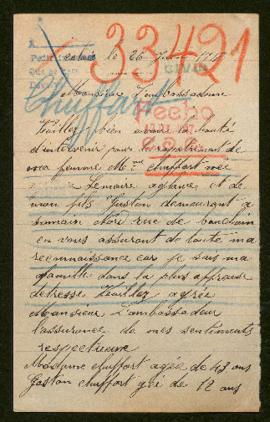 33421
Calais le 26
CIVIL
Chuffart
Monsieur l'ambassadeur
Hecho
Veuillez bien avoir la bonté
d'intervenir pour le rapatriement de
ma femme Mme Chuffart née
Lemaire aglaée et de
mon fils Gaston demeurant a
somain Nord rue de bouchain
en vous assurant de toute ma
reconnaissance car je suis ma
famille dans la plus affreuse
detresse Veuillez agrée
Monsieur L'ambassadeur
l'assurance de mes sentiments
respectueux
Madame chuffort agée de 43 ans
Gaston chuffort gé de 12 ans